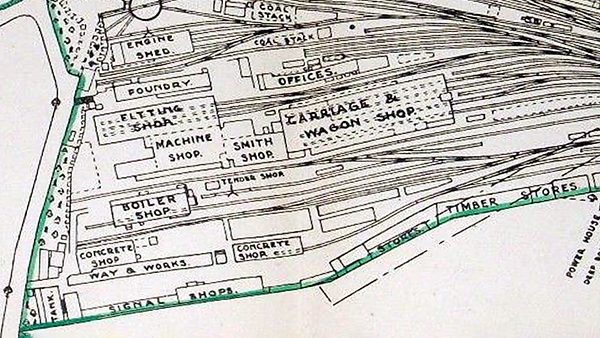 COAL
STACK
COAL STACK
ENGINE
SHED.
OFFICES.
FOUNDRY.
FITTING
SHOP.
CARRIAGE &
WAGON SHOP.
MACHINE
SHOP.
SMITH
SHOP.
TENDER SHOP
BOILER
SHOP.
CONCRETE
SHOP
CONCRETE
SHOP
WAY & WORKS.
TANK.
SIGNAL SHOPS.
STORES
TIMBER STORES
POWER HOUSE
DEEP